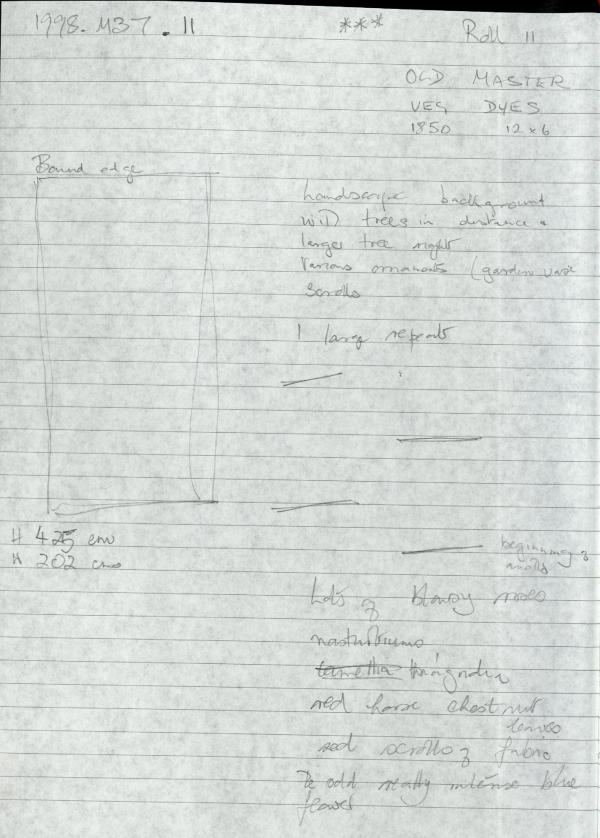 1998. M37. 11 *** Roll 11
OLD MASTER
VEG DYES
1850 12 x 6
Bound edge
Landscape background
with trees in distance &
larger tree right
Various ornaments (garden vase
Scrolls
1 large repeat
H 425 cm
W 202 cms
beginning of
Lots of Blowsy roses
nasturtiums
camellia magnolia
red horse chestnut
leaves
red scrolls of fabric
The odd really intense blue
flower